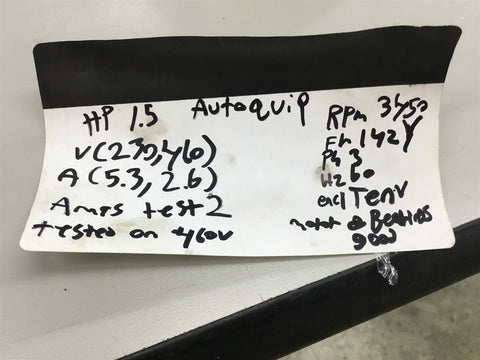 Autoquip
HP 1.5
V(230,460)
A (5.3, 2.6)
Amps test 2
tested on 460v
RPM 3450
Fr 142Y
PH 3
HZ 60
encl Tenv
motor & Bearings
good